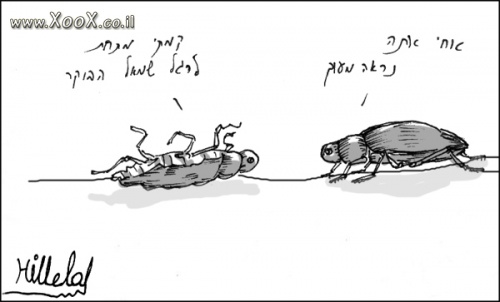 www.XooX.co.il
אוחי אתה
נראה מעוך
קמתי מתחת
לרגל שמאל הבוקר
Hillelal